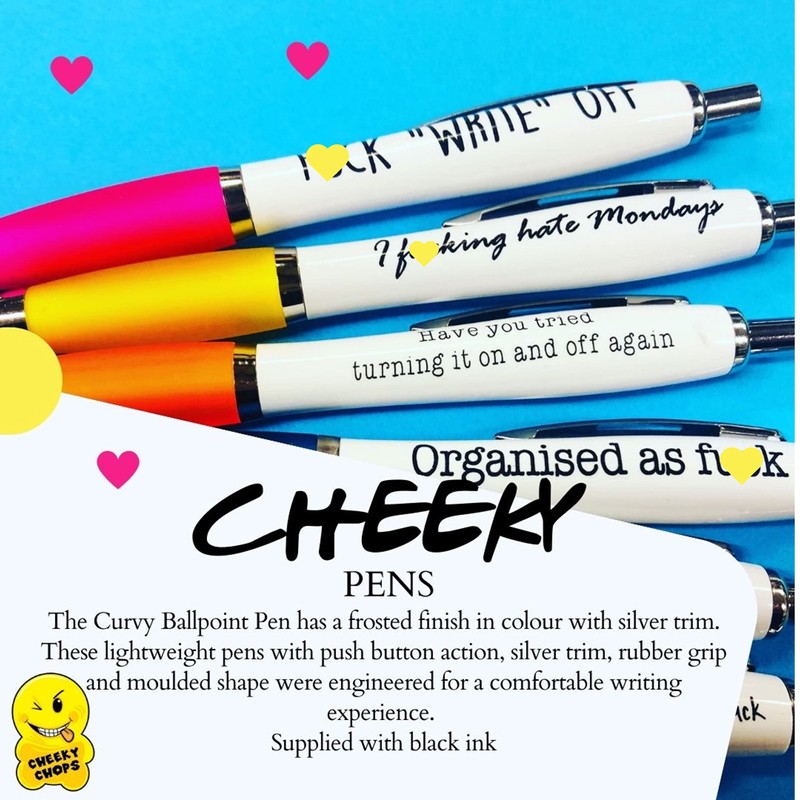 FUCK "WRITE" OFF
I fucking hate Mondays
Have you tried
turning it on and off again
Organised as fuck
CHEEKY
PENS
The Curvy Ballpoint Pen has a frosted finish in colour with silver trim.
These lightweight pens with push button action, silver trim, rubber grip
and moulded shape were engineered for a comfortable writing
experience.
Supplied with black ink
CHEEKY
CHOPS